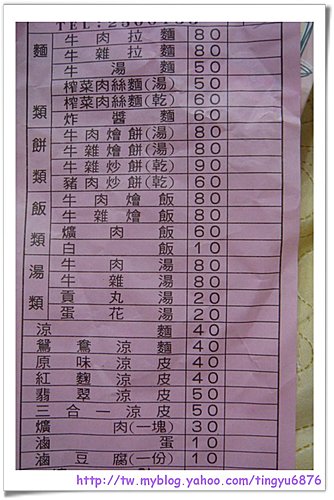 TEL:
麵類
牛肉拉麵 80
牛雜拉麵 80
牛湯麵 50
榨菜肉絲麵(湯) 50
榨菜肉絲麵(乾) 60
炸醬麵 60
餅類
牛肉燴餅(湯) 80
牛雜燴餅(湯) 80
牛雜炒餅(乾) 90
豬肉炒餅(乾) 60
飯類
牛肉燴飯 80
牛雜燴飯 80
爌肉飯 60
白飯 10
湯類
牛肉湯 80
牛雜湯 80
貢丸湯 20
蛋花湯 20
涼麵 40
鴛鴦涼麵 40
原味涼皮 40
紅麴涼皮 40
翡翠涼皮 50
三合一涼皮 50
爌肉(一塊) 30
滷蛋 10
滷豆腐(一份) 10
http://tw.myblog.yahoo.com/tingyu6876